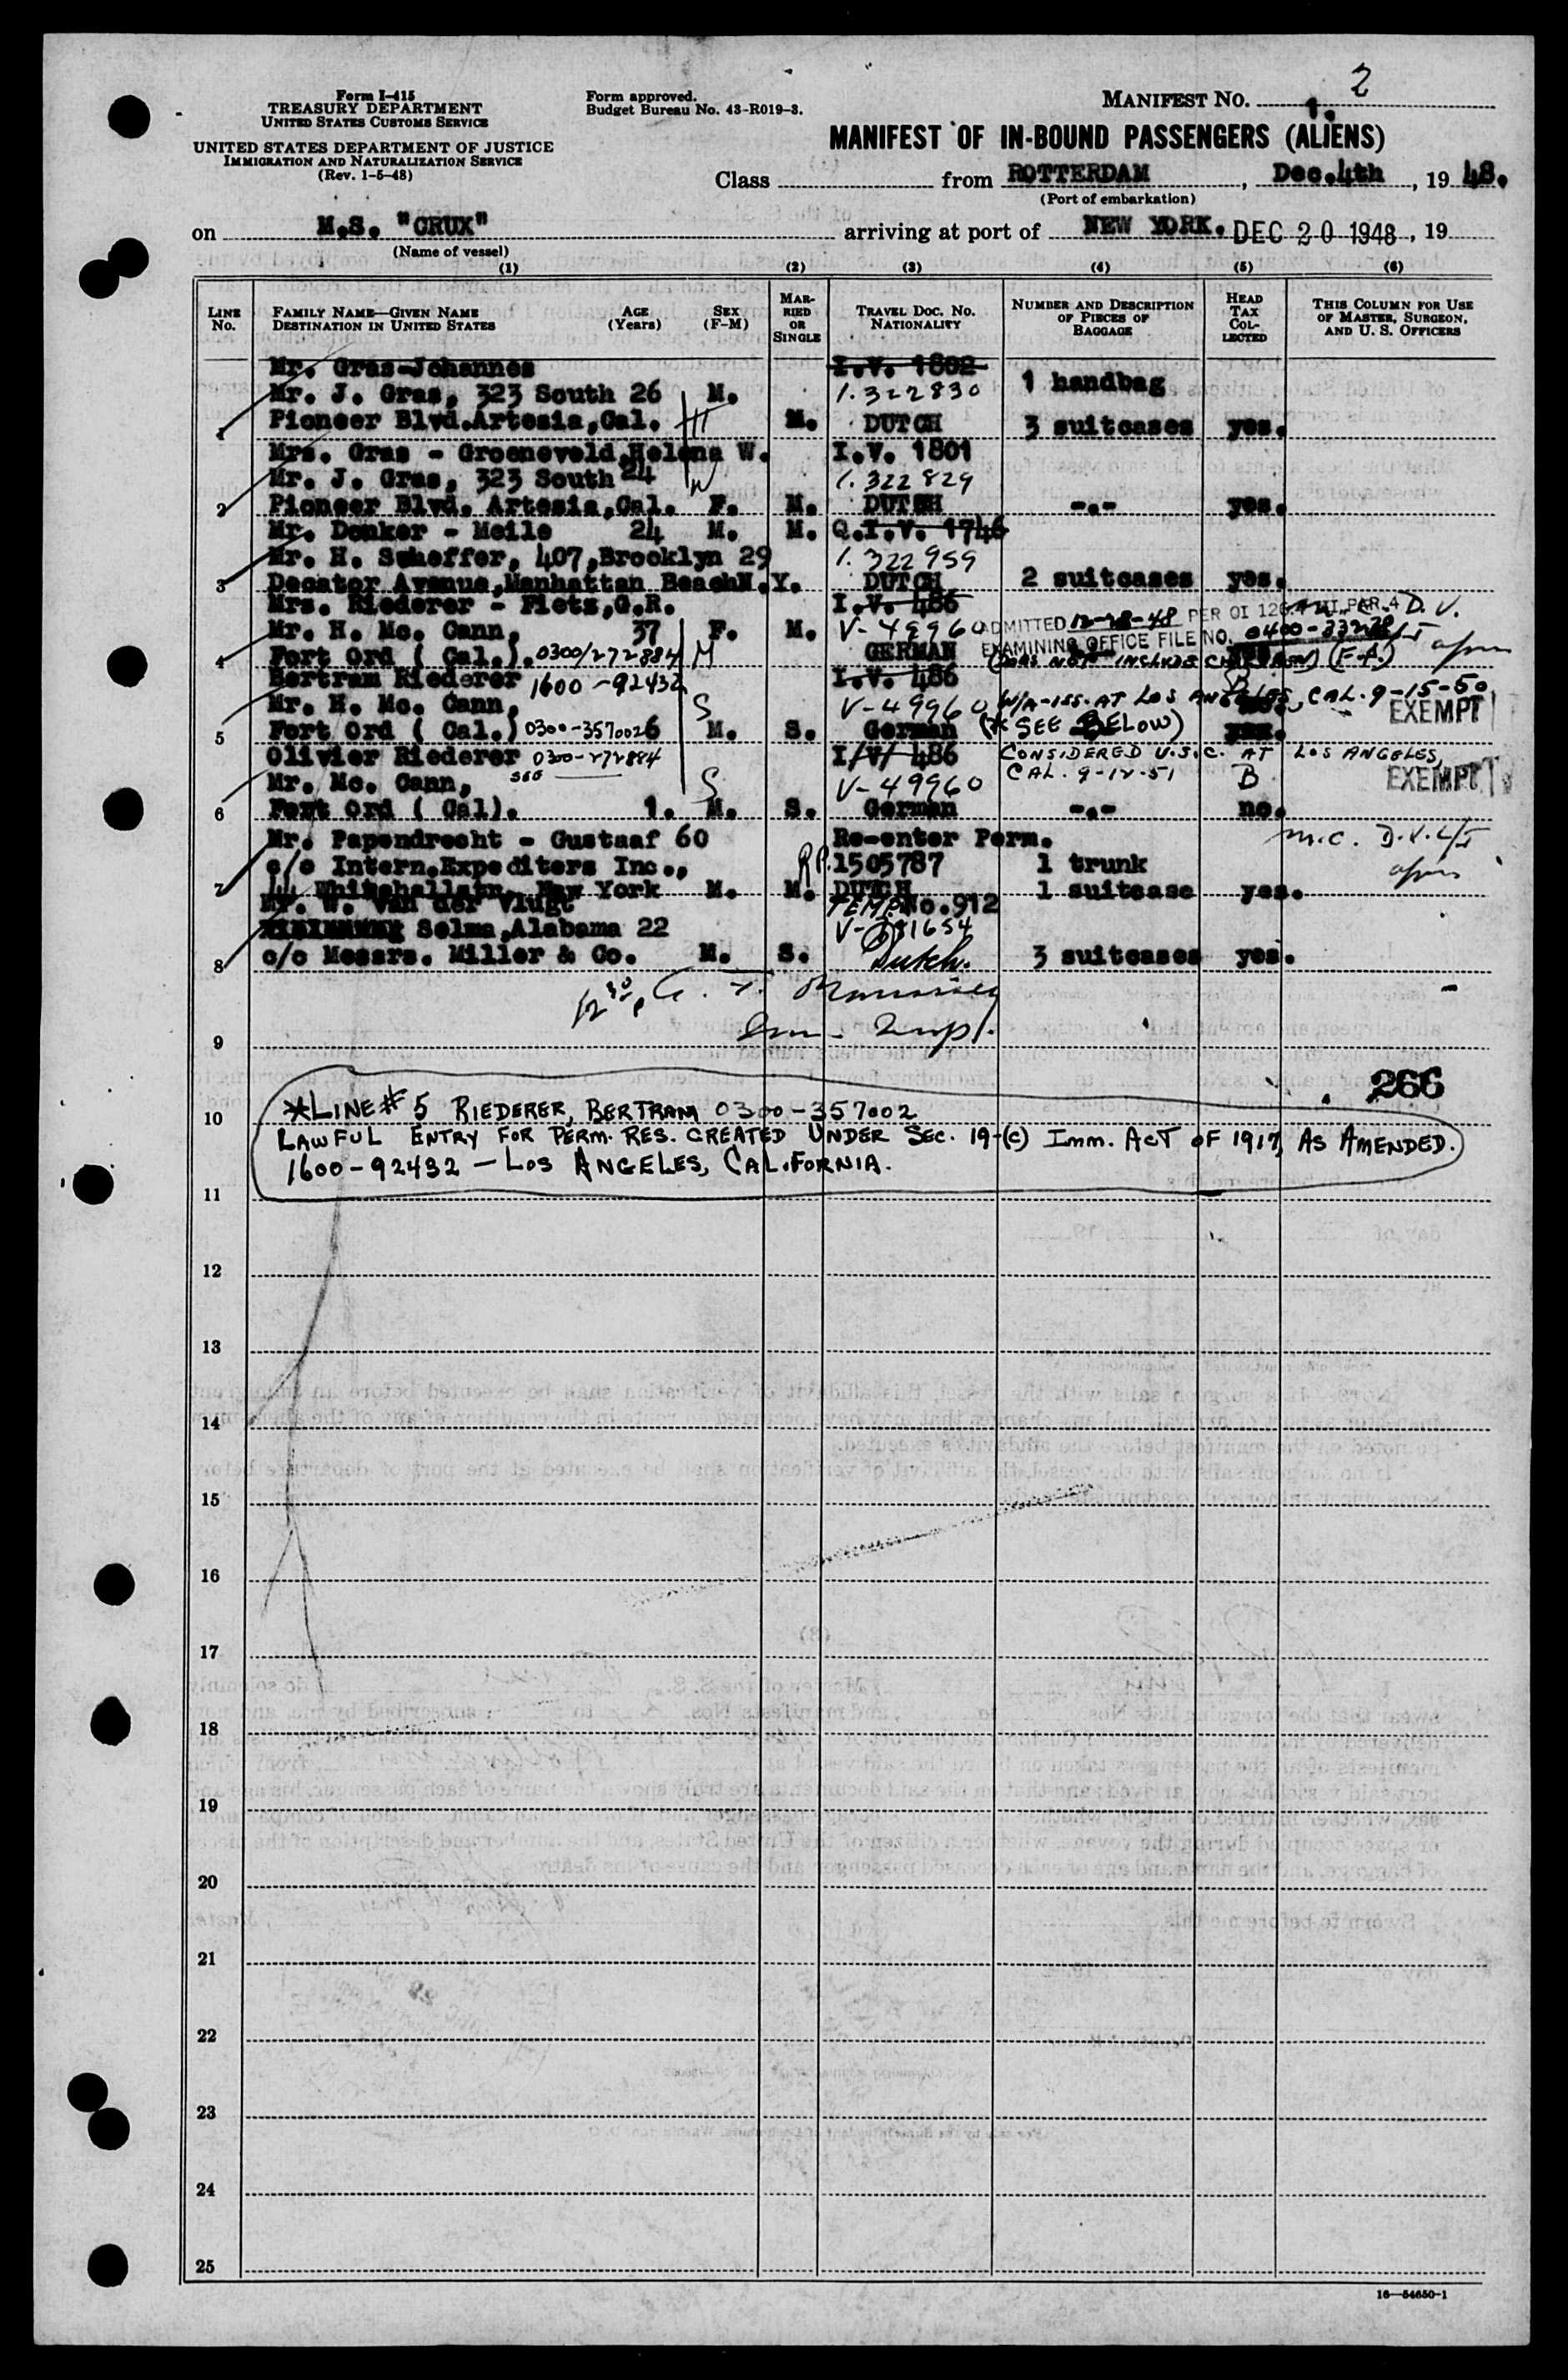 Form I-415
TREASURY DEPARTMENT
UNITED STATES CUSTOMS SERVICE
UNITED STATES DEPARTMENT OF JUSTICE
IMMIGRATION AND NATURALIZATION SERVICE
(Rev. 1-5-48)
Form approved.
Budget Bureau No. 43-R019-3.
MANIFEST NO. 2
1.
MANIFEST OF IN-BOUND PASSENGERS (ALIENS)
Class from ROTTERDAM, Dec.4th, 19 48.
(Port of embarkation)
on M.S. "CRUX" arriving at port of NEW YORK. DEC 20 1948, 19
(Name of vessel)
(1) (2) (3) (4) (5) (6)
LINE No. FAMILY NAME—GIVEN NAME DESTINATION IN UNITED STATES AGE (Years) SEX (F-M) MARRIED OR SINGLE TRAVEL DOC. NO. NATIONALITY NUMBER AND DESCRIPTION OF PIECES OF BAGGAGE HEAD TAX COLLECTED THIS COLUMN FOR USE OF MASTER, SURGEON, AND U. S. OFFICERS
Mr. Gras-Johannes I.V. 1802
Mr. J. Gras, 323 South 26 M. 1.322830 1 handbag
1 Pioneer Blvd.Artesia,Cal. H M. DUTCH 3 suitcases yes.
Mrs. Gras - Groeneveld,Helena W. I.V. 1801
Mr. J. Gras, 323 South 24 W 1.322829
2 Pioneer Blvd. Artesia,Cal. F. M. DUTCH -.- yes.
Mr. Donker - Meile 24 M. M. Q.I.V. 1746
Mr. H. Scheffer, 407,Brooklyn 29 1.322959
3 Decator Avenue,Manhattan BeachN.Y. DUTCH 2 suitcases yes.
Mrs. Riederer - Piets,G.R. I.V. 486 D.V.
Mr. H. Mc. Cann, 37 F. M. V-49960 ADMITTED 12-28-48 PER OI PAR.4
EXAMINING OFFICE FILE NO.
4 Fort Ord ( Cal.). 0300/272884 M GERMAN (DOES NOT INCLUDE CHILDREN)
Bertram Riederer 1600-92432 I.V. 486 B
Mr. H. Mc. Cann, S V-49960 W/A-ISS. AT LOS ANGELES, CAL. 9-15-50
5 Fort Ord ( Cal.) 0300-357002 6 M. S. German (* SEE BELOW) yes. EXEMPT
Olivier Riederer 0300-272884 I/V/ 486 CONSIDERED U.S.C. AT LOS ANGELES,
Mr. Mc. Cann, S V-49960 CAL. 9-12-51 B EXEMPT
6 Fort Ord ( Cal). 1. M. S. German -.- no.
Mr. Papendrecht - Gustaaf 60 Re-enter Perm. M.C. D.V.
c/o Intern.Expediters Inc., R.P. 1505787 1 trunk
7 44 Whitehallstn. New York M. M. DUTCH 1 suitcase yes.
Mr. W. van der Vlugt TEMP. No.912
Selma,Alabama 22
8 c/o Messrs. Miller & Co. M. S. Dutch. 3 suitcases yes.
9
266
10 *LINE# 5 RIEDERER, BERTRAM 0300-357002
LAWFUL ENTRY FOR PERM. RES. CREATED UNDER SEC. 19-(c) IMM. ACT OF 1917, AS AMENDED.
1600-92432 — LOS ANGELES, CALIFORNIA.
11
12
13
14
15
16
17
18
19
20
21
22
23
24
25
16—54650-1